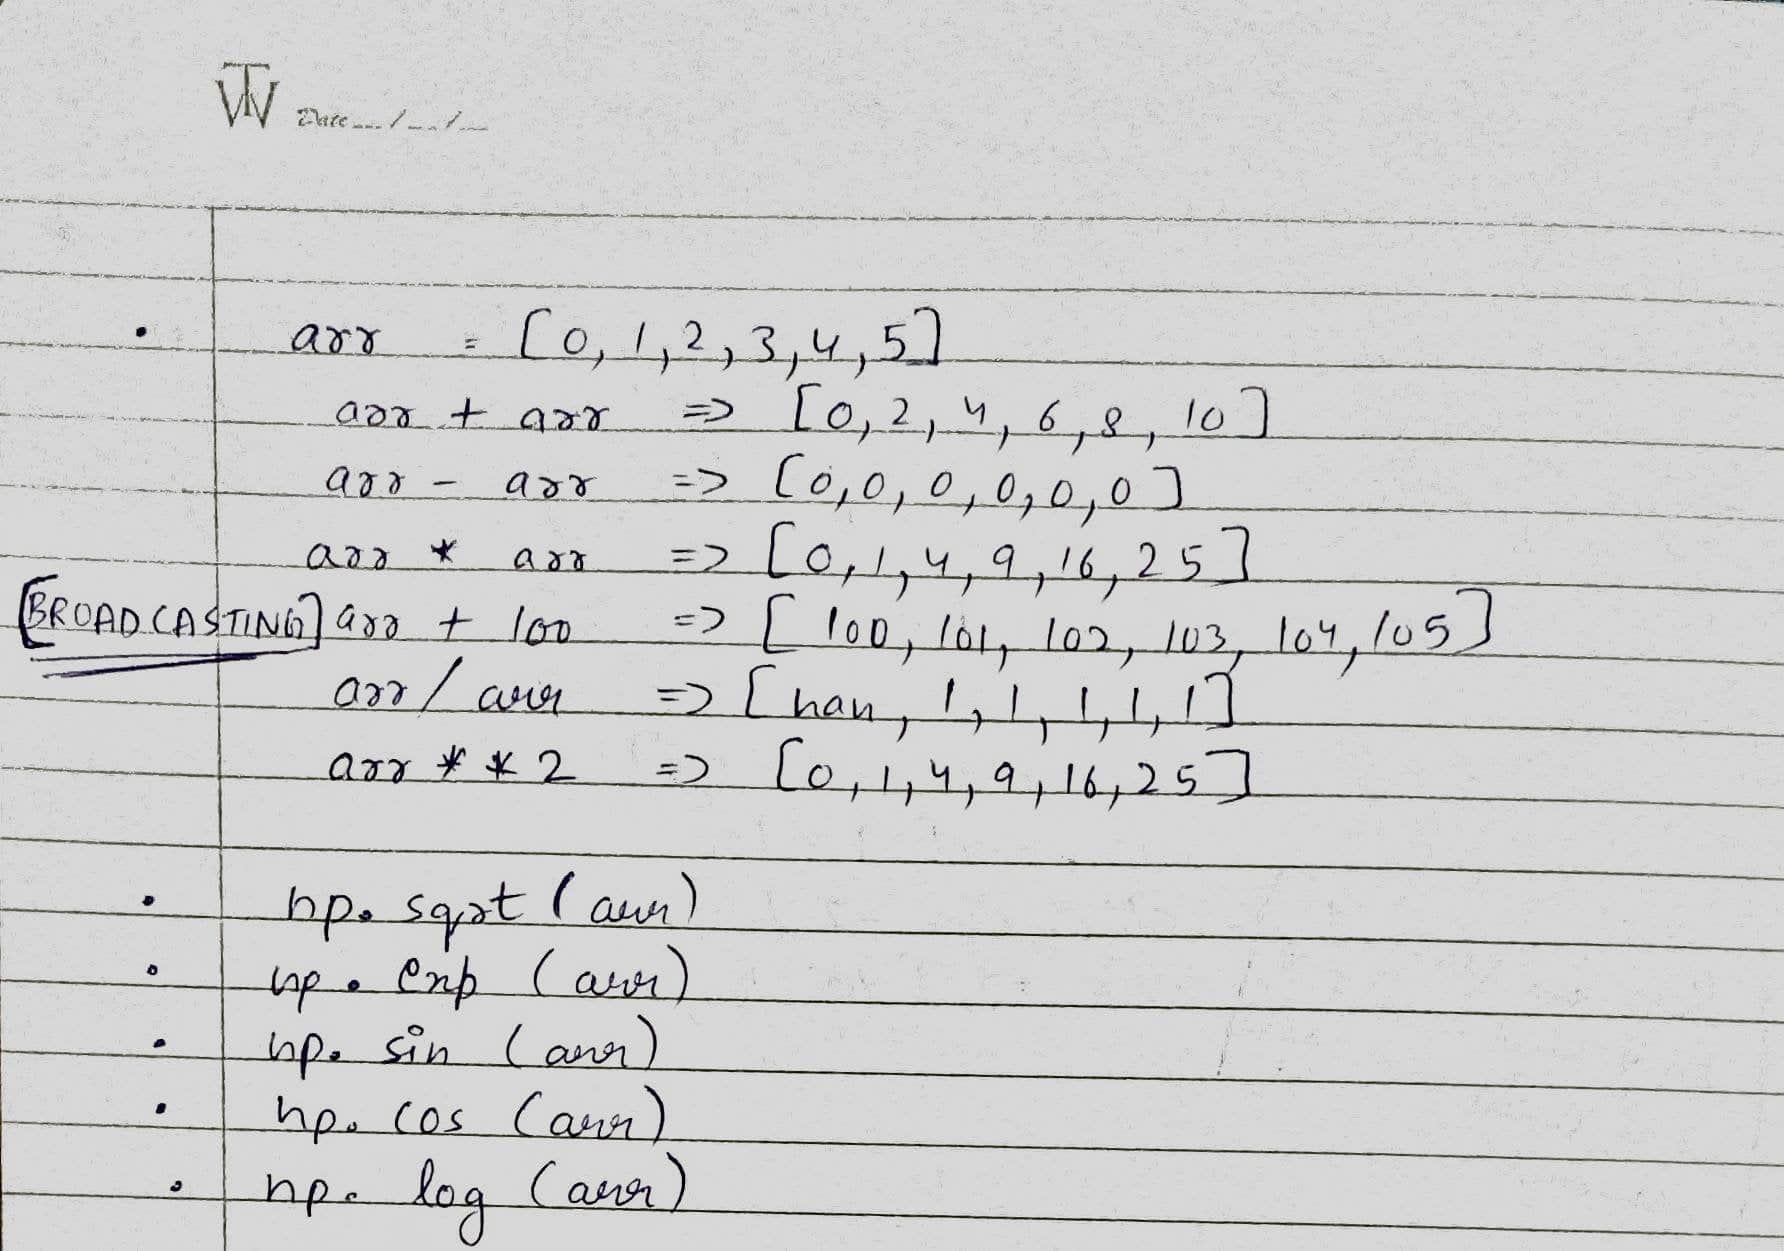 TW Date __/__/__
• arr = [0, 1, 2, 3, 4, 5]
arr + arr => [0, 2, 4, 6, 8, 10]
arr - arr => [0, 0, 0, 0, 0, 0]
arr * arr => [0, 1, 4, 9, 16, 25]
[BROADCASTING] arr + 100 => [100, 101, 102, 103, 104, 105]
arr / arr => [nan, 1, 1, 1, 1, 1]
arr ** 2 => [0, 1, 4, 9, 16, 25]
• np. sqrt (arr)
• np. exp (arr)
• np. sin (arr)
• np. cos (arr)
• np. log (arr)